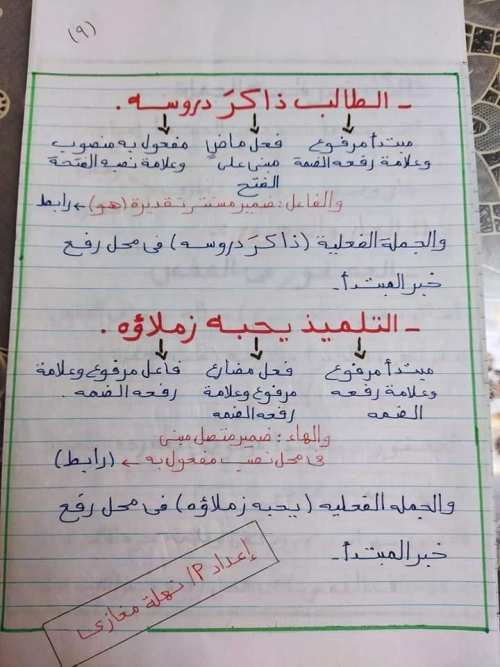 (٩)
- الطالب ذاكرَ دروسه .
مبتدأ مرفوع فعل ماضٍ مفعول به منصوب
وعلامة رفعه الضمة مبنى على وعلامة نصبه الفتحة
الفتح
والفاعل : ضمير مستتر تقديرة (هو) ← رابط
والجملة الفعلية (ذاكرَ دروسه) فى محل رفع
خبر المبتدأ .
- التلميذ يحبه زملاؤه .
مبتدأ مرفوع فعل مضارع فاعل مرفوع وعلامة
وعلامة رفعه مرفوع وعلامة رفعه الضمه .
الضمه رفعه الضمه
والهاء : ضمير متصل مبنى
فى محل نصب مفعول به ← (رابط)
والجمله الفعليه (يحبه زملاؤه) فى محل رفع
خبر المبتدأ .
إعداد P/ نهلة مغازى